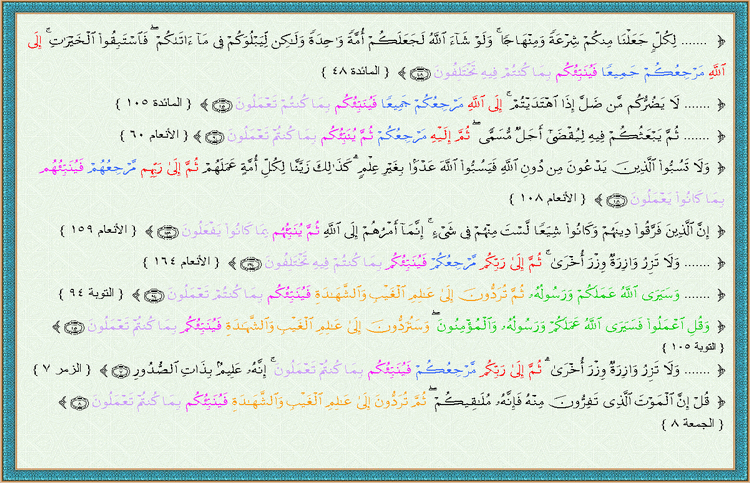 ﴿ ....... لِكُلٍّ جَعَلْنَا مِنكُمْ شِرْعَةً وَمِنْهَاجًا ۚ وَلَوْ شَآءَ ٱللَّهُ لَجَعَلَكُمْ أُمَّةً وَٰحِدَةً وَلَٰكِن لِّيَبْلُوَكُمْ فِى مَآ ءَاتَىٰكُمْ ۖ فَٱسْتَبِقُوا۟ ٱلْخَيْرَٰتِ ۚ إِلَى
ٱللَّهِ مَرْجِعُكُمْ جَمِيعًا فَيُنَبِّئُكُم بِمَا كُنتُمْ فِيهِ تَخْتَلِفُونَ ﴿٤٨﴾ ﴾ { المائدة ٤٨ }
﴿ ....... لَا يَضُرُّكُم مَّن ضَلَّ إِذَا ٱهْتَدَيْتُمْ ۚ إِلَى ٱللَّهِ مَرْجِعُكُمْ جَمِيعًا فَيُنَبِّئُكُم بِمَا كُنتُمْ تَعْمَلُونَ ﴿١٠٥﴾ ﴾ { المائدة ١٠٥ }
﴿ ....... ثُمَّ يَبْعَثُكُمْ فِيهِ لِيُقْضَىٰٓ أَجَلٌ مُّسَمًّى ۖ ثُمَّ إِلَيْهِ مَرْجِعُكُمْ ثُمَّ يُنَبِّئُكُم بِمَا كُنتُمْ تَعْمَلُونَ ﴿٦٠﴾ ﴾ { الأنعام ٦٠ }
﴿ وَلَا تَسُبُّوا۟ ٱلَّذِينَ يَدْعُونَ مِن دُونِ ٱللَّهِ فَيَسُبُّوا۟ ٱللَّهَ عَدْوًۢا بِغَيْرِ عِلْمٍ ۗ كَذَٰلِكَ زَيَّنَّا لِكُلِّ أُمَّةٍ عَمَلَهُمْ ثُمَّ إِلَىٰ رَبِّهِم مَّرْجِعُهُمْ فَيُنَبِّئُهُم
بِمَا كَانُوا۟ يَعْمَلُونَ ﴿١٠٨﴾ ﴾ { الأنعام ١٠٨ }
﴿ إِنَّ ٱلَّذِينَ فَرَّقُوا۟ دِينَهُمْ وَكَانُوا۟ شِيَعًا لَّسْتَ مِنْهُمْ فِى شَىْءٍ ۚ إِنَّمَآ أَمْرُهُمْ إِلَى ٱللَّهِ ثُمَّ يُنَبِّئُهُم بِمَا كَانُوا۟ يَفْعَلُونَ ﴿١٥٩﴾ ﴾ { الأنعام ١٥٩ }
﴿ ....... وَلَا تَزِرُ وَازِرَةٌ وِزْرَ أُخْرَىٰ ۚ ثُمَّ إِلَىٰ رَبِّكُم مَّرْجِعُكُمْ فَيُنَبِّئُكُم بِمَا كُنتُمْ فِيهِ تَخْتَلِفُونَ ﴿١٦٤﴾ ﴾ { الأنعام ١٦٤ }
﴿ ....... وَسَيَرَى ٱللَّهُ عَمَلَكُمْ وَرَسُولُهُۥ ثُمَّ تُرَدُّونَ إِلَىٰ عَٰلِمِ ٱلْغَيْبِ وَٱلشَّهَٰدَةِ فَيُنَبِّئُكُم بِمَا كُنتُمْ تَعْمَلُونَ ﴿٩٤﴾ ﴾ { التوبة ٩٤ }
﴿ وَقُلِ ٱعْمَلُوا۟ فَسَيَرَى ٱللَّهُ عَمَلَكُمْ وَرَسُولُهُۥ وَٱلْمُؤْمِنُونَ ۖ وَسَتُرَدُّونَ إِلَىٰ عَٰلِمِ ٱلْغَيْبِ وَٱلشَّهَٰدَةِ فَيُنَبِّئُكُم بِمَا كُنتُمْ تَعْمَلُونَ ﴿١٠٥﴾ ﴾
{ التوبة ١٠٥ }
﴿ ....... وَلَا تَزِرُ وَازِرَةٌ وِزْرَ أُخْرَىٰ ۗ ثُمَّ إِلَىٰ رَبِّكُم مَّرْجِعُكُمْ فَيُنَبِّئُكُم بِمَا كُنتُمْ تَعْمَلُونَ ۚ إِنَّهُۥ عَلِيمٌۢ بِذَاتِ ٱلصُّدُورِ ﴿٧﴾ ﴾ { الزمر ٧ }
﴿ قُلْ إِنَّ ٱلْمَوْتَ ٱلَّذِى تَفِرُّونَ مِنْهُ فَإِنَّهُۥ مُلَٰقِيكُمْ ۖ ثُمَّ تُرَدُّونَ إِلَىٰ عَٰلِمِ ٱلْغَيْبِ وَٱلشَّهَٰدَةِ فَيُنَبِّئُكُم بِمَا كُنتُمْ تَعْمَلُونَ ﴿٨﴾ ﴾
{ الجمعة ٨ }